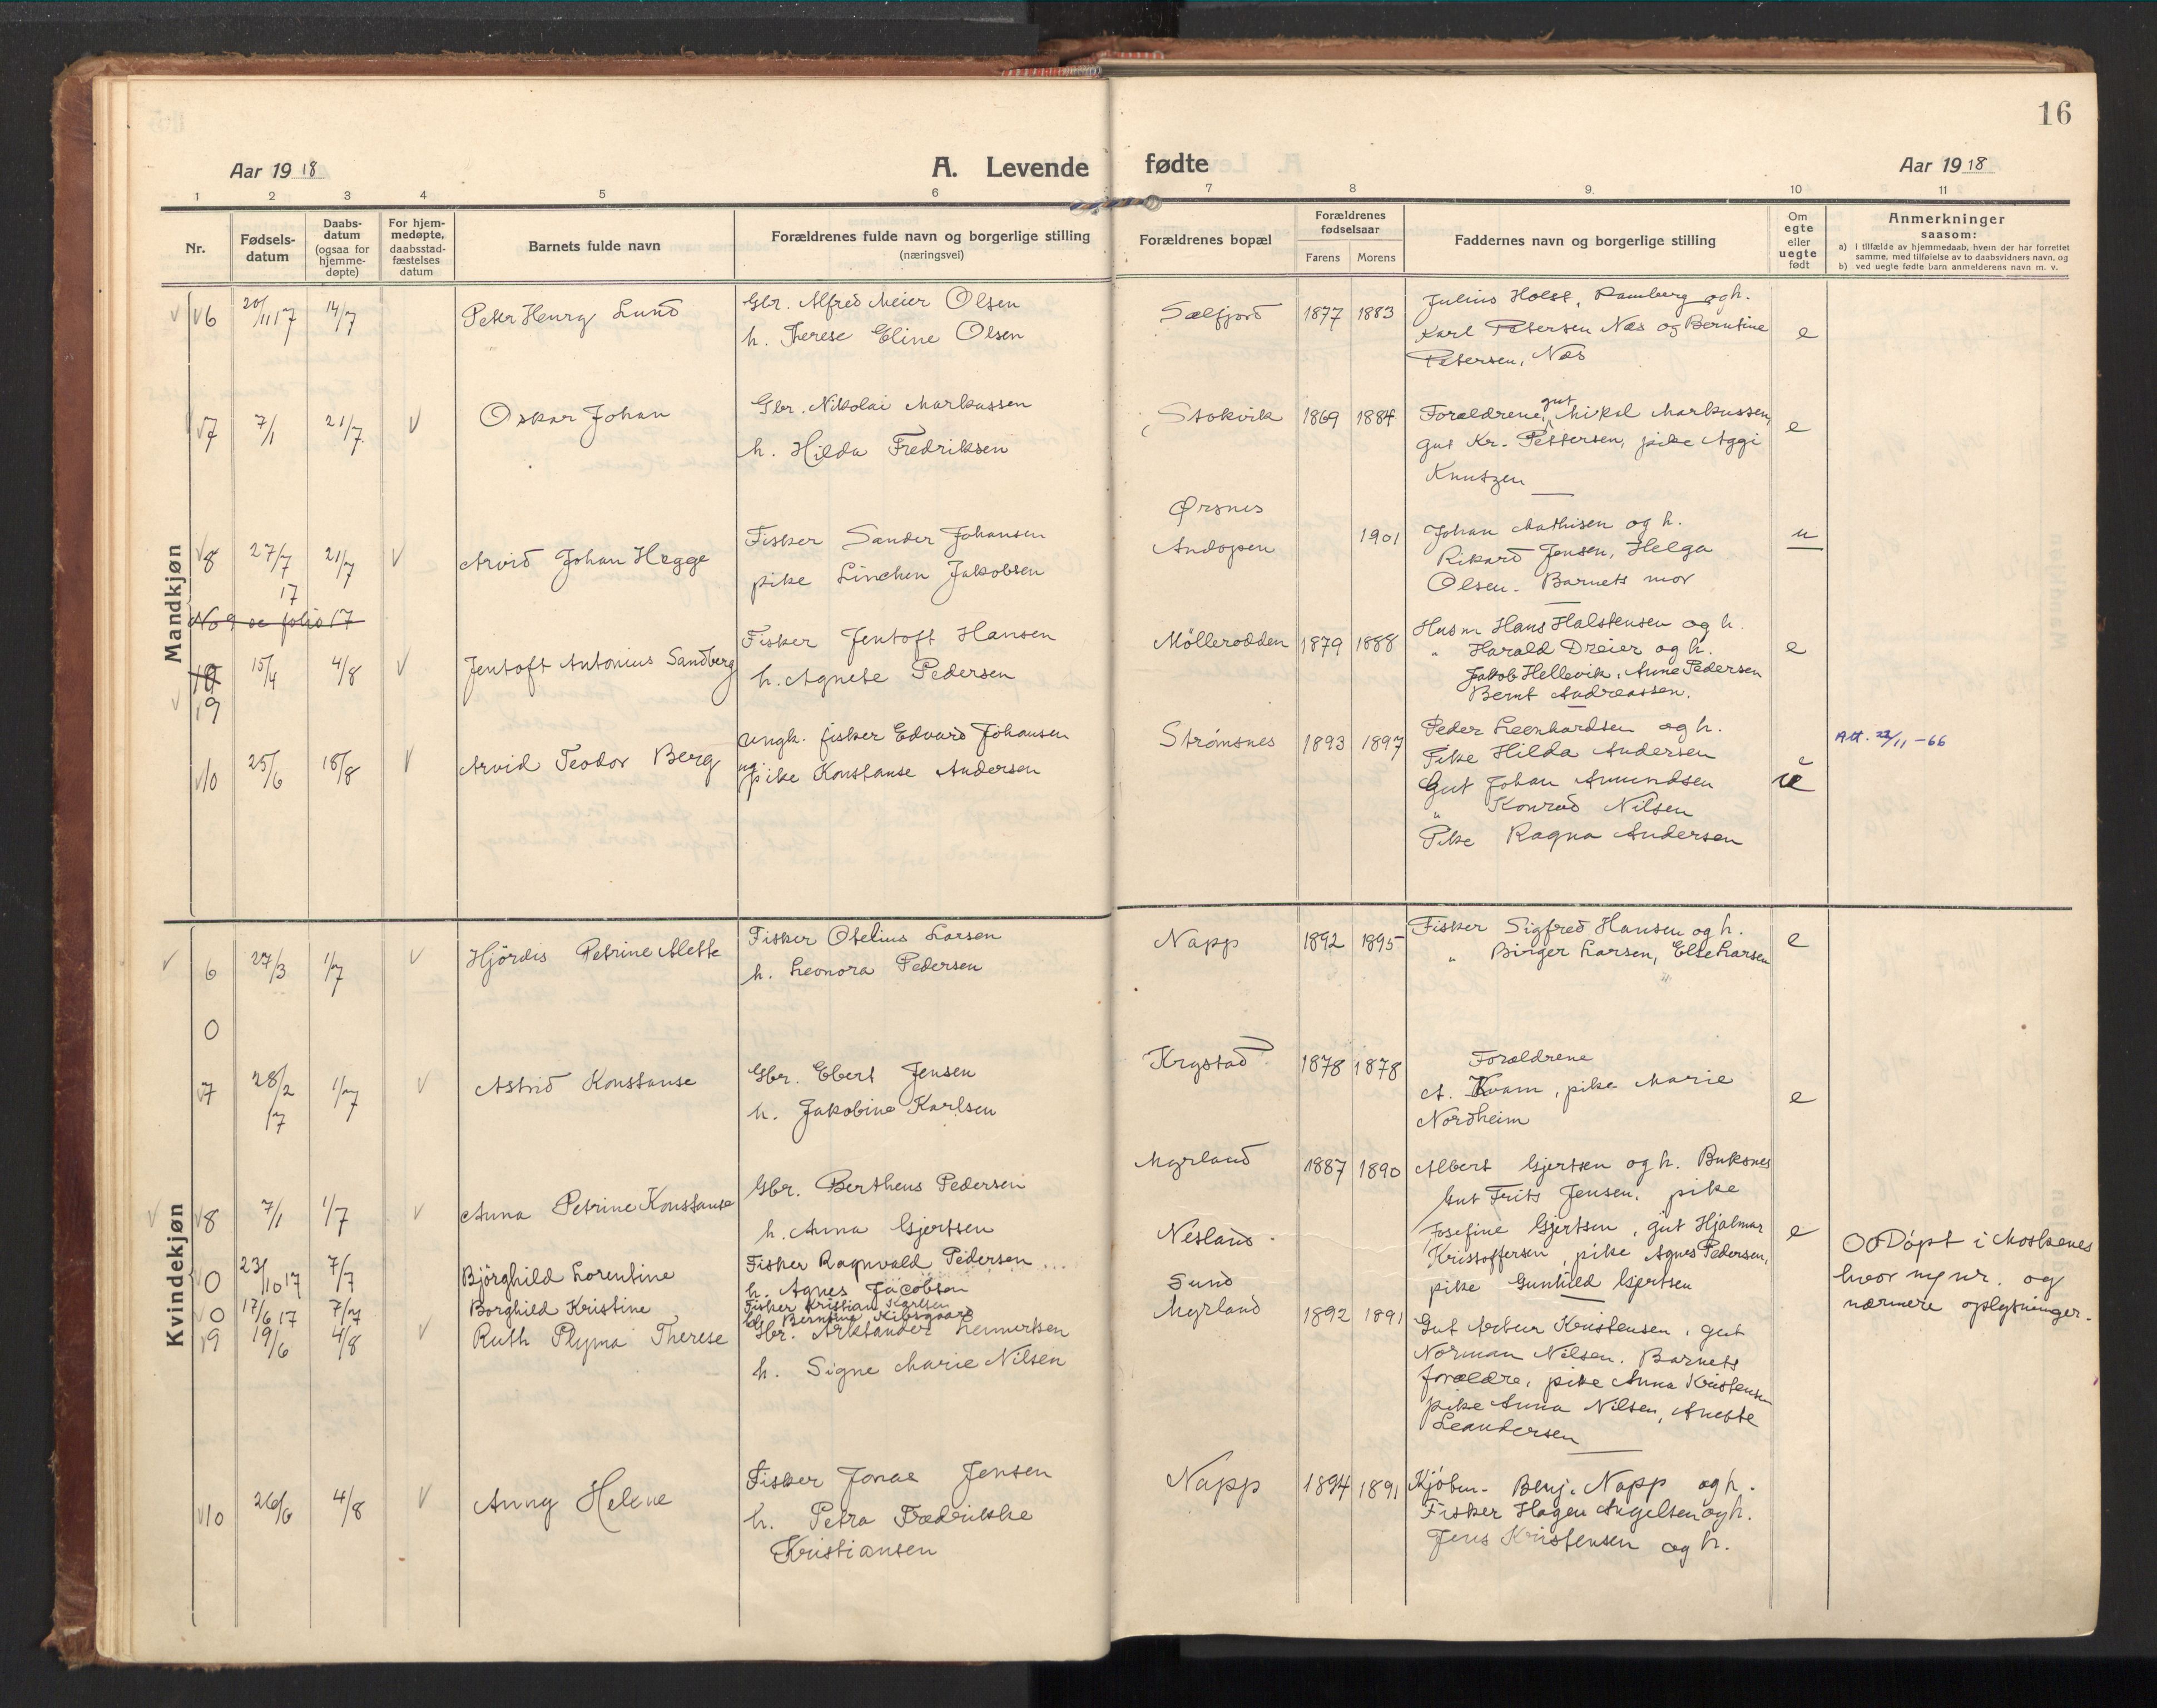 16
Aar 1918
A. Levende fødte
Aar 1918
1 2 3 4 5 6 7 8 9. 10 11
Nr.
Fødsels-datum
Daabs-datum (ogsaa for hjemme-døpte)
For hjem-medøpte, daabsstad-fæstelses datum
Barnets fulde navn
Forældrenes fulde navn og borgerlige stilling
(næringsvei)
Forældrenes bopæl
Forældrenes fødselsaar
Farens Morens
Faddernes navn og borgerlige stilling
Om egte eller uegte født
Anmerkninger
saasom:
a) i tilfælde av hjemmedaab, hvem der har forrettet samme, med tilføielse av to daabsvidners navn, og
b) ved uegte fødte barn anmelderens navn m. v.
Mandkjøn
6 20/11 17 14/7 Peter Henry Lund
Gbr. Alfred Meier Olsen
h. Therese Eline Olsen
Sælfjord 1877 1883
Julius Holst, Ramberg og h.
Karl Petersen Næs og Berntine
Petersen, Næs
e
7 7/1 21/7 V Oskar Johan
Gbr. Nikolai Markussen
h. Hilda Fredriksen
Stokvik 1869 1884
Forældrene, gut Mikal Markussen,
gut Kr. Pettersen, pike Aggi
Knutzen
e
8 27/7 17 21/7 V Arvid Johan Hegge
Fisker Sander Johansen
pike Linchen Jakobsen
Ørsnes
Andopen 1901
Johan Mathisen og h.
Rikard Jensen, Helga
Olsen. Barnets mor
u
No 9 se folio 17
10 9 15/4 4/8 V Jentoft Antonius Sandberg
Fisker Jentoft Hansen
h. Agnete Pedersen
Møllerodden 1879 1888
Husm Hans Halstensen og h.
" Harald Dreier og h.
Jakob Hellevik, Anne Pedersen
Bernt Andreassen.
e
10 25/6 18/8 V Arvid Teodor Berg
Ungk. fisker Edvard Johansen
og pike Konstanse Andersen
Strømsnes 1893 1897
Peder Leonhardsen og h.
Pike Hilda Andersen
Gut Johan Amundsen
" Konrad Nilsen
Pike Ragna Andersen
Att. 22/11 - 66
Kvindekjøn
6 27/3 1/7 V Hjördis Petrine Alette
Fisker Otelius Larsen
h. Leonora Pedersen
Napp 1892 1895
Fisker Sigfred Hansen og h.
" Birger Larsen, Else Larsen
e
0
7 28/2 17 1/7 V Astrid Konstanse
Gbr. Ebert Jensen
h. Jakobine Karlsen
Krystad 1878 1878
Forældrene
A. Kvam, pike Marie
Nordheim
e
8 7/1 1/7 V Anna Petrine Konstanse
Gbr. Bertheus Pedersen
h. Anna Gjertsen
Myrland 1887 1890
Albert Gjertsen og h. Buksnes
Gut Frits Jensen, pike
Josefine Gjertsen, gut Hjalmar
Kristoffersen, pike Agnes Pedersen,
pike Gunhild Gjertsen
e
0 23/10 17 7/7 Björghild Lorentine
Fisker Ragnvald Pedersen
h. Agnes Jacobsen
Nesland
0 17/6 17 7/7 Borghild Kristine
Fisker Kristian Karlsen
h. Berntine Kibsgaard
Sund
00 Döpt i Moskenes
hvor nye nr. og
nærmere oplysninger.
9 19/6 4/8 V Ruth Plyma Therese
Gbr. Arklander Lennertsen
h. Signe Marie Nilsen
Myrland 1892 1891
Gut Artur Kristensen, gut
Norman Nilsen. Barnets
forældre, pike Anna Kristensen
pike Anna Nilsen, Anette
Leandersen
10 26/6 4/8 V Anny Helene
Fisker Jonas Jensen
h. Petra Fredrikke
Kristiansen
Napp 1894 1891
Kjöbm. Benj. Napp og h.
Fisker Hagen Angelsen og h.
Jens Kristensen og h.